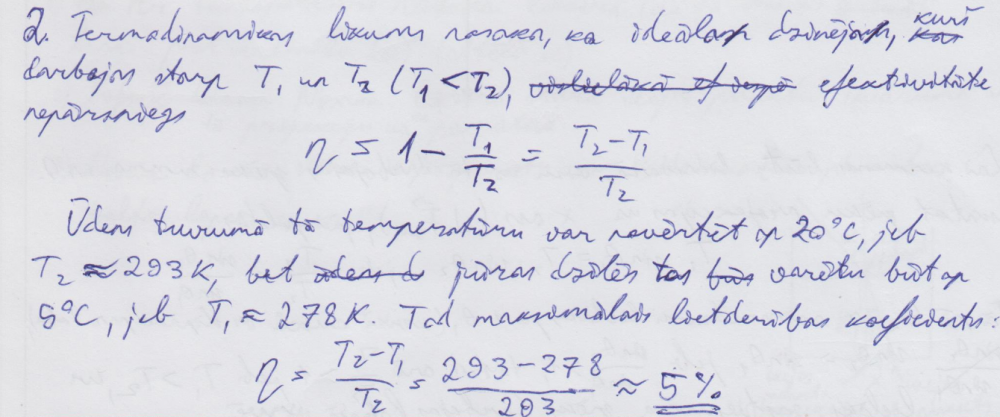 2. Termodinamikas likums nosaka, ka ideālam dzinējam, kurš
darbojas starp T₁ un T₂ (T₁ < T₂), efektivitāte
nepārsniegs
η ≤ 1 - T₁/T₂ = (T₂-T₁)/T₂
Ūdens tuvumā to temperatūru var novērtēt ap 20°C, jeb
T₂ ≈ 293 K, bet jūras dzīlēs tas varētu būt ap
5°C, jeb T₁ ≈ 278 K. Tad maksimālais lietderības koeficients:
η = (T₂-T₁)/T₂ = (293-278)/293 ≈ 5%